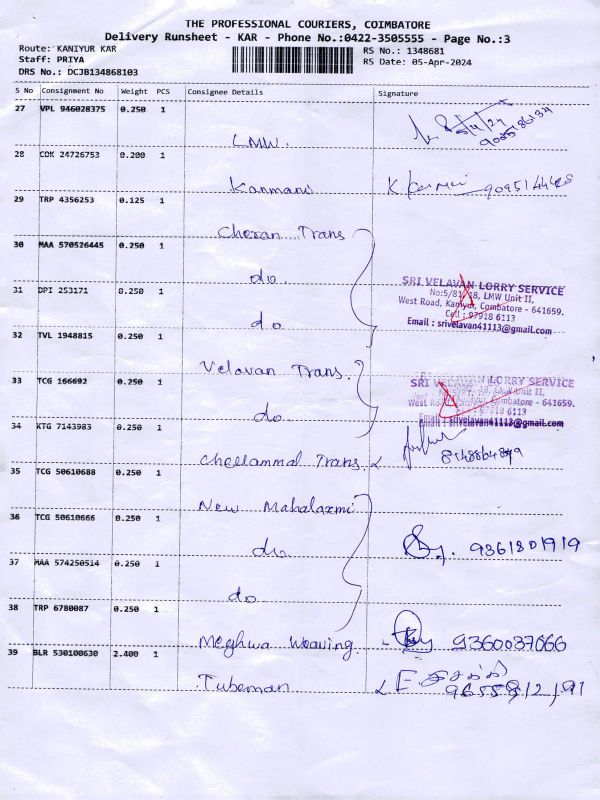 THE PROFESSIONAL COURIERS, COIMBATORE
Delivery Runsheet - KAR - Phone No.:0422-3505555 - Page No.:3
Route: KANIYUR KAR
RS No.: 1348681
Staff: PRIYA
RS Date: 05-Apr-2024
DRS No.: DCJB134868103
S No Consignment No Weight PCS Consignee Details Signature
27 VPL 946028375 0.250 1
5/4/24
LMW.
28 COK 24726753 0.200 1
Kanmani
29 TRP 4356253 0.125 1
Cheran Trans
30 MAA 570526445 0.250 1
do.
31 DPI 253171 0.250 1
do
SRI VELAVAN LORRY SERVICE
LMW Unit II,
West Road, Kaniyur, Combatore - 641659.
Cell : 97918 6113
Email : srivelavan41113@gmail.com
32 TVL 1948815 0.250 1
Velavan Trans.
33 TCG 166692 0.250 1
do
SRI VELAVAN LORRY SERVICE
Unit II,
West Road, Combatore - 641659.
97918 6113
Email : srivelavan41113@gmail.com
34 KTG 7143983 0.250 1
Chellammal Trans
35 TCG 50610688 0.250 1
New Mahalaxmi
36 TCG 50610666 0.250 1
do
9361801919
37 MAA 574250514 0.250 1
do
38 TRP 6780087 0.250 1
Meghwa Weaving
9360037666
39 BLR 530100630 2.400 1
Tubeman